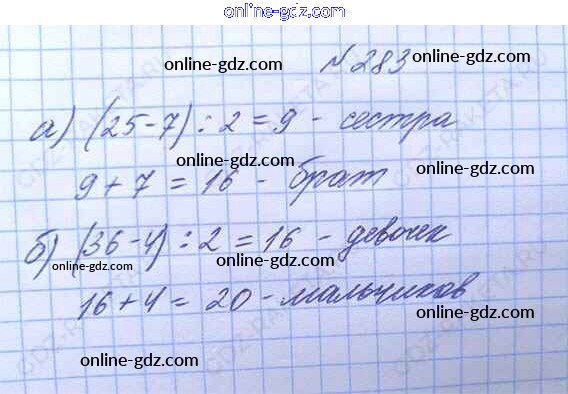 online-gdz.com
№283
online-gdz.com online-gdz.com
а) (25-7):2=9 - сестра
online-gdz.com
9+7=16 - брат
online-gdz.com online-gdz.com
б) (36-4):2=16 - девочек
online-gdz.com online-gdz.com
16+4=20-мальчиков
online-gdz.com online-gdz.com
online-gdz.com